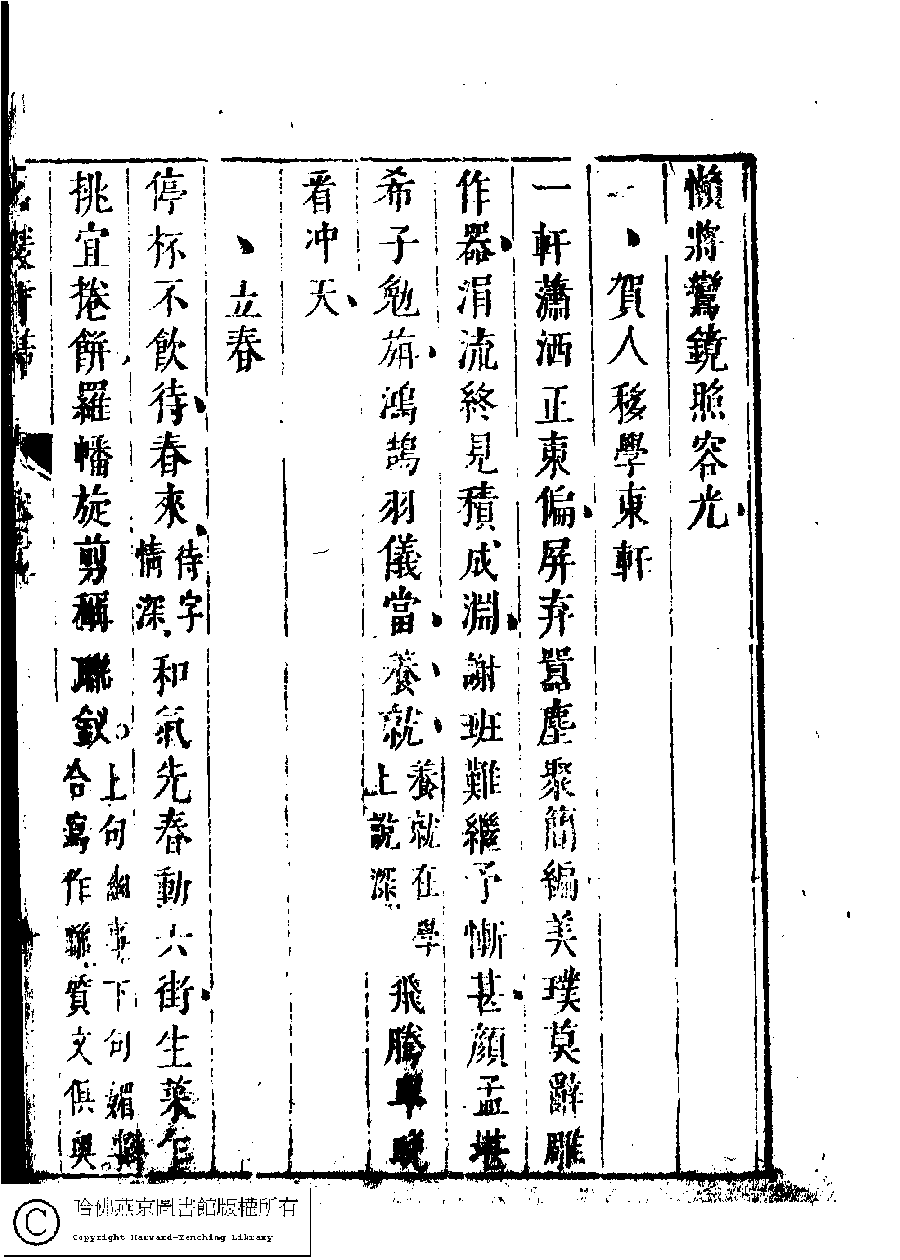 懶將鸞鏡照容光
賀人移學東軒
一軒蕭洒正東偏屏弃囂塵聚簡編美璞莫辭雕
作器涓流終見積成淵謝班難繼予慚甚顏孟堪
希子勉旃鴻鵠羽儀當養就養就在學上說深飛騰早晚
看冲天
立春
停杯不飲待春來待字情深和氣先春動六街生菜乍
挑宜捲餅羅幡旋剪稱聯釵上句細事下句媚合寫作聯質文俱
哈佛燕京圖書館版權所有
Copyright Harvard-Yenching Library